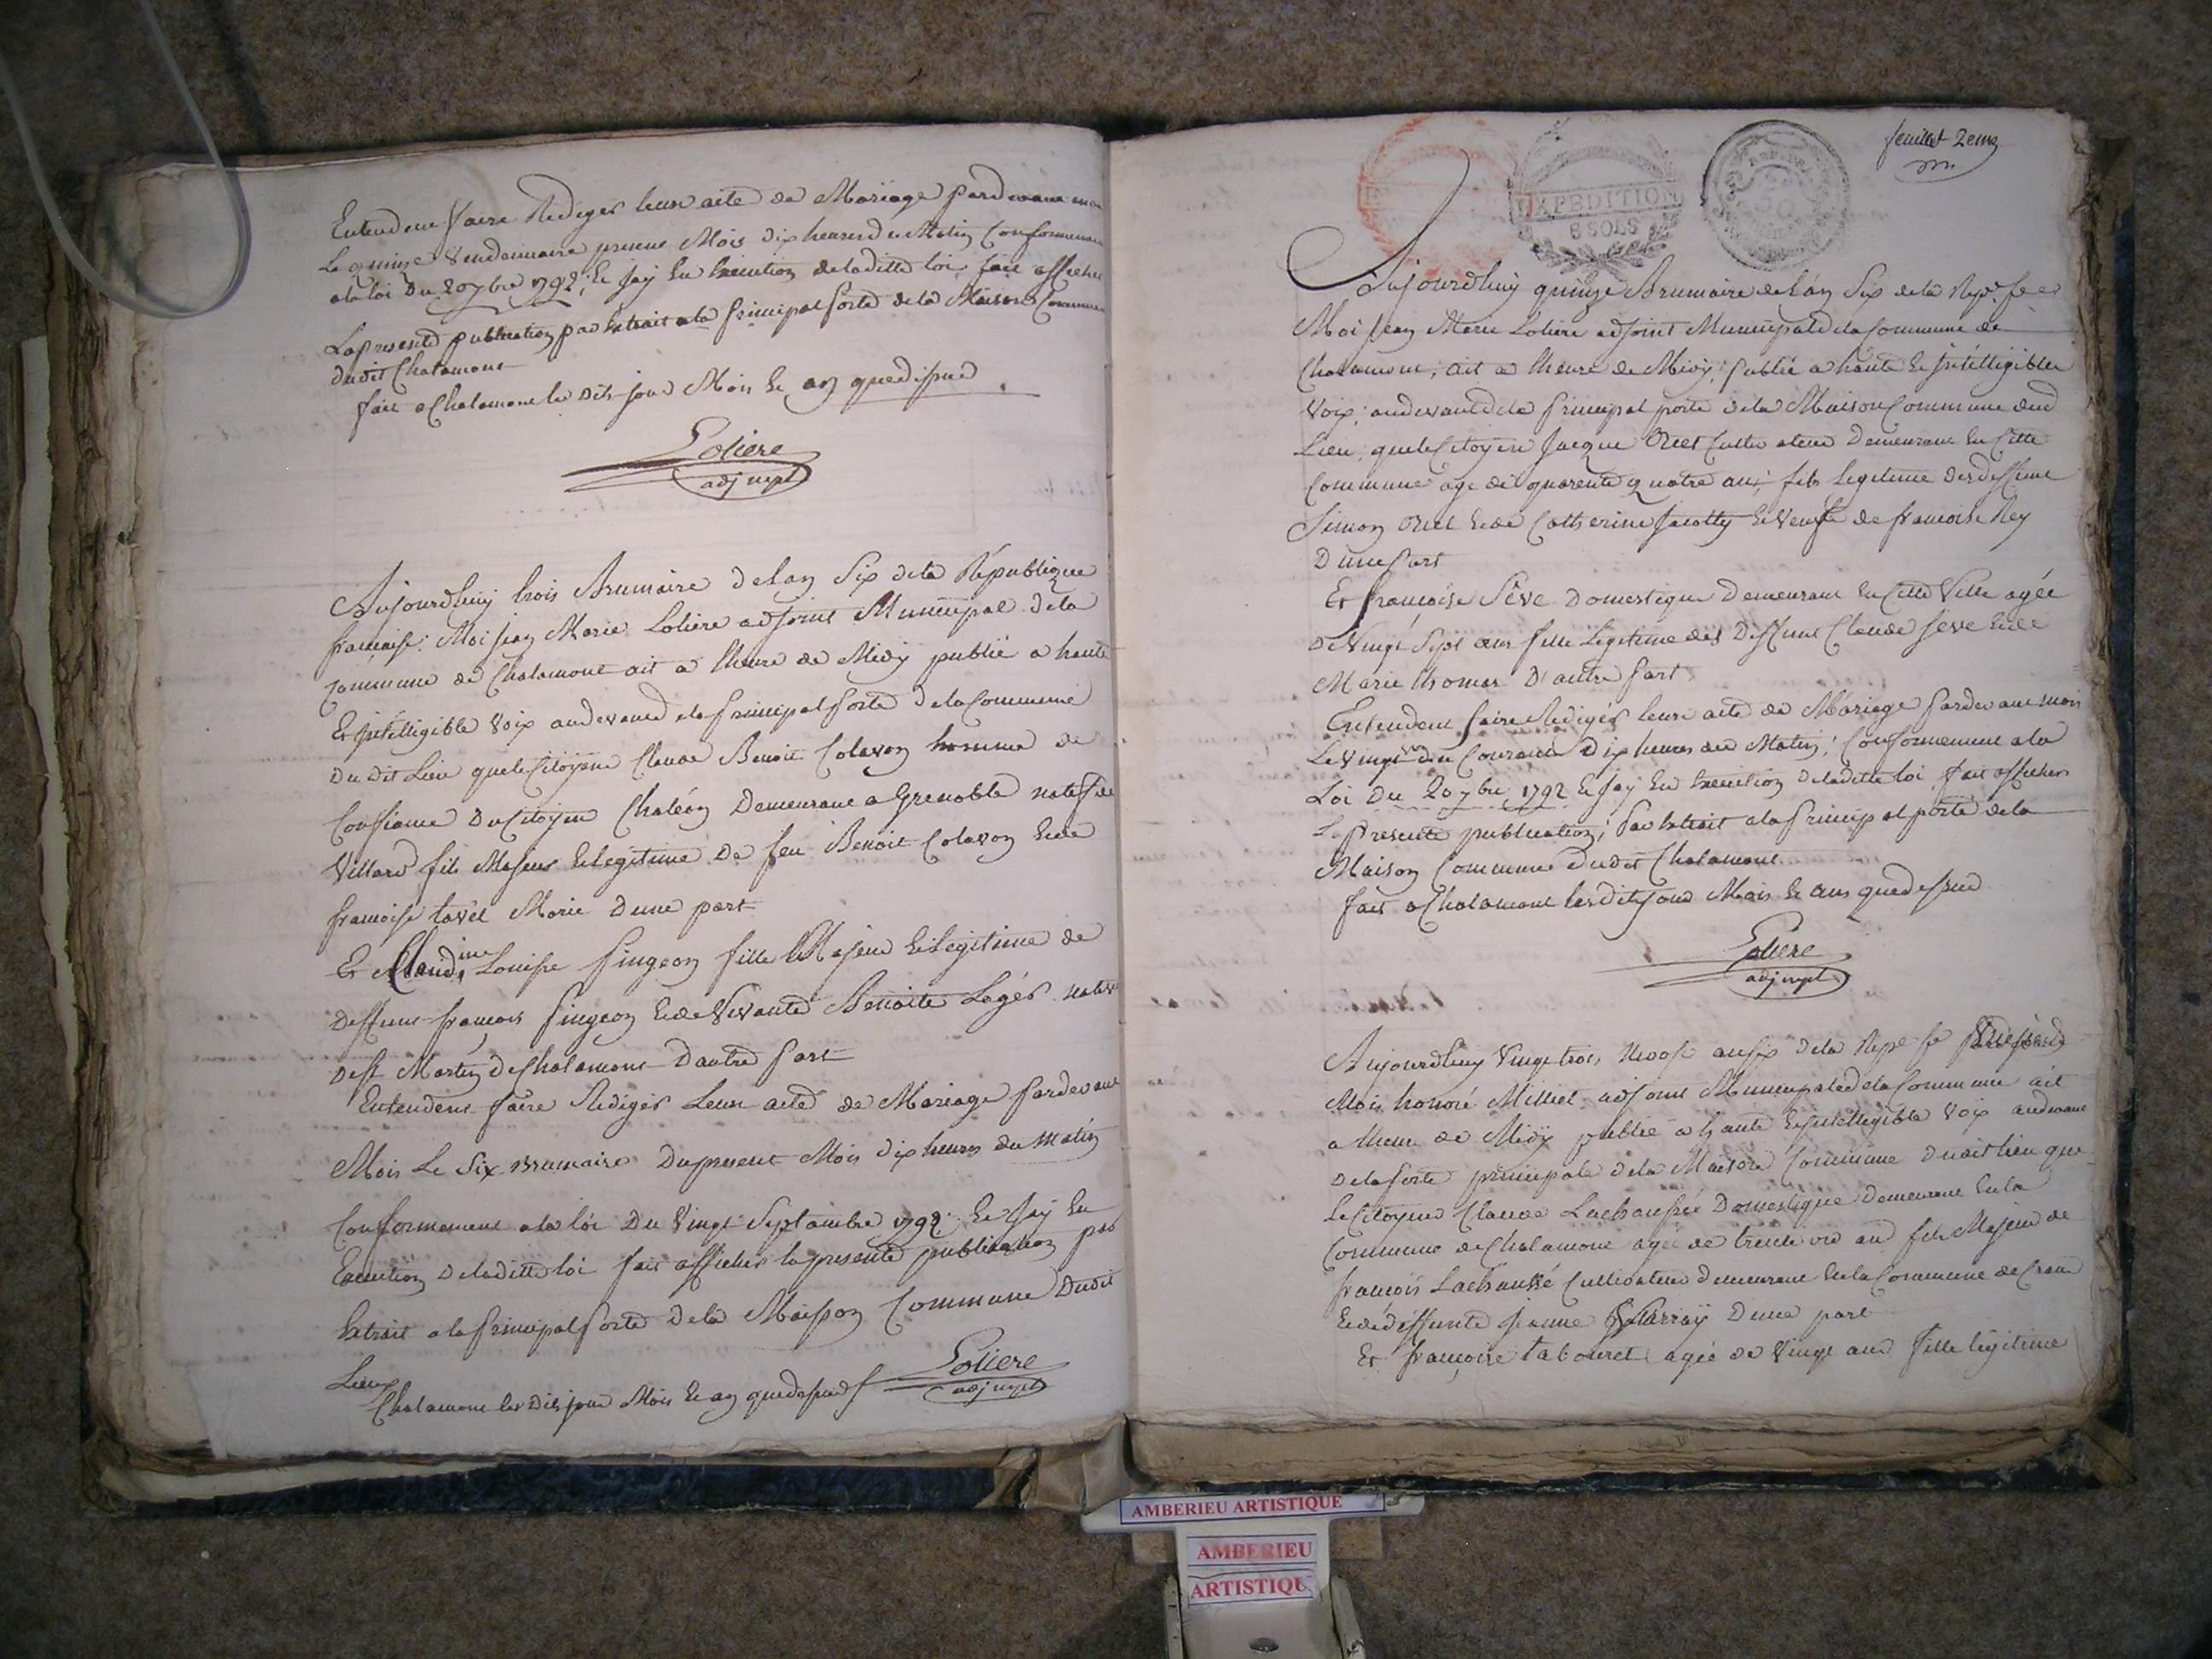 Entendent faire Rediger leur acte de Mariage pardevant moi
Le quinze Vendemiaire present Mois dix heures du Matin Conformement
ala loi Du 20 7bre 1792, Et Jay En Execution deladitte loi fait afficher
La presente publication par Extrait ala principal porte dela Maison Commune
dudit Chalamont
fait a Chalamont les Dits jour Mois Et an quedessus
Loliere
adj mpl
Aujourdhuy trois Brumaire delan Six dela République
francaise. Moi Jean Marie Loliere adjoint Municipal dela
commune de Chalamont ait a lheure de Midy publié a haute
Et Intélligible voix audevant dela principal porte dela Commune
Du dit Lieu quele Citoyen Claude Benoit Colavon homme de
Confiance Du Citoyen Chaléon Demeurant a Grenoble natif de
Villard fils Majeur Et legitime De feu Benoit Colavon Et de
francoise tavel Marie Dune part
Et Claudine Louise pingeon fille Majeur Et legitime de
deffunt francois pingeon Et de Vivante Benoite Léger native
de St Martin de Chalamont Dautre part
Entendent faire Rediger Leur acte de Mariage pardevant
Moi Le Six Brumaire Du present Mois dix heures du matin
Conformement ala loi Du Vingt Septembre 1792. Et Jay En
Execution deladitte loi fait afficher la presente publication par
Extrait ala principal porte dela Maison Commune Dudit
Lieu
Chalamont les Dits jour Mois Et an quedessus
Loliere
adj mpl
feuillet 2eme
EXPEDITION
8 SOLS
Aujourdhuy quinze Brumaire delan Six dela Repe. fse
Moi Jean Marie Loliere adjoint Municipal dela Commune de
Chalamont, ait a lheure de Midy, publié a haute Et Intélligible
voix, audevant dela principal porte dela Maison Commune dud
Lieu, quele Citoyen Jacque Oret Cultivateur Demeurant En Cette
Commune age de quarente quatre ans, fils Legitime des deffunt
Simon Oret Et de Catherine Jacotty Et Veuf de francoise Rey
Dune part
Et françoise Séve Domestique Demeurant En Cette Ville agée
De Vingt Sept ans fille Legitime des Deffunt Claude Seve Et de
Marie thomas D'autre part
Entendent faire Rediger leur acte de Mariage pardevant moi
Le Vingt du Courant Dix heures du Matin, Conformement ala
Loi Du 20 7bre 1792 Et Jay En Execution deladitte loi fait afficher
La Presente publication, par Extrait ala principal porte dela
Maison Commune dudit Chalamont
fait a Chalamont les dits jour Mois Et ans quedessus
Loliere
adj mpl
Aujourdhuy Vingt trois Nivose an six dela Repe fse
Moi honoré Milliet adjoint Municipal dela Commune ait
a lheure de Midy publié a haute Et Intelligible Voix audevant
dela porte principale dela Maison Commune dudit lieu que
Le Citoyen Claude Lachaussée Domestique Demeurant En la
Commune de Chalamont agée de trente an fils Majeur de
françois Lachaussé Cultivateur Demeurant En la Commune de Crans
Et de déffunte Jeanne Dune part
Et françoise tabouret agée de Vingt ans fille legitime
AMBERIEU ARTISTIQUE
AMBERIEU
ARTISTIQU